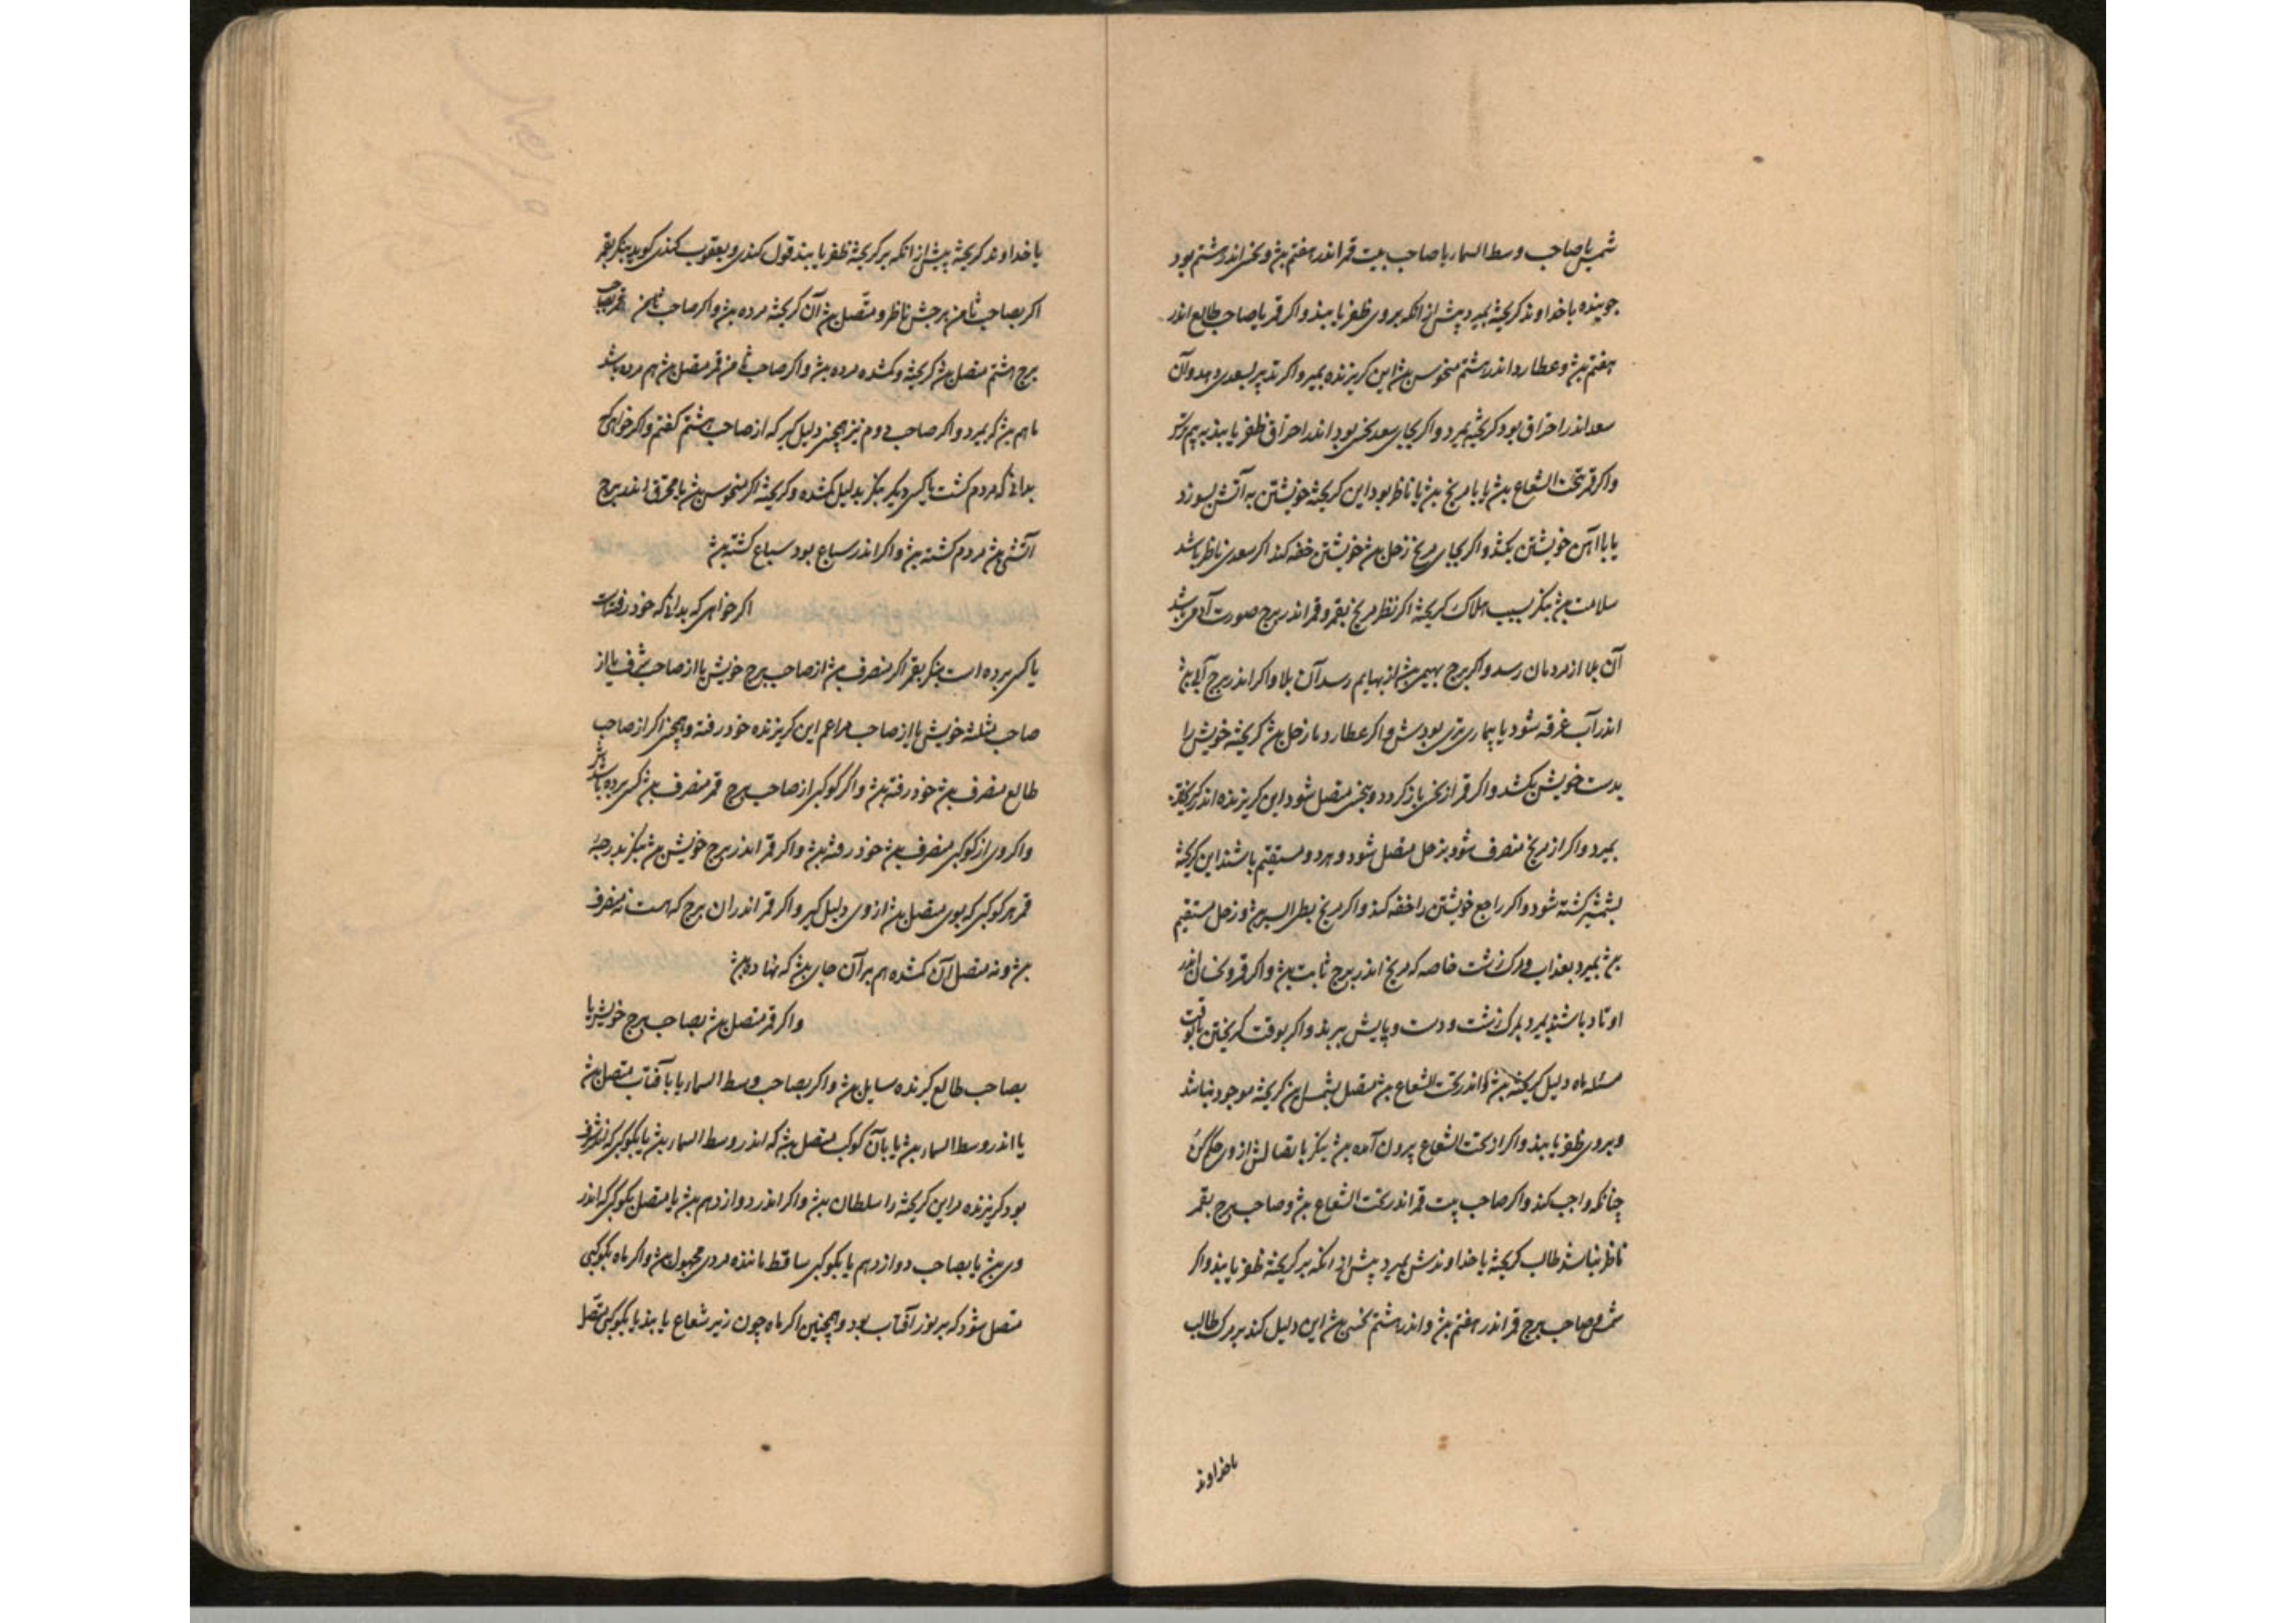 شمس یا صاحب وسط السما یا صاحب بیت قمر اندر هفتم بود و نحس اندر هشتم بود
جوینده یا خداوند کریخته بمیرد پیش از انکه بروی ظفر یابند و اکر قمر یا صاحب طالع اندر
هفتم بود و عطارد اندر هشتم منحوس بود این کریزنده بمیرد و اکر تدبیر بسعدی دهد و آن
سعد اندر احتراق بود کریخته بمیرد و اکر بجای سعد نحس بود اندر احتراق ظفر یابند
و اکر قمر تحت الشعاع بود یا با مریخ بود یا ناظر بود این کریخته خویشتن به آتش بسوزد
یا باآهن خویشتن بکشد و اکر بجای مریخ زحل بود خویشتن خفه کند اکر سعدی ناظر باشد
سلامت بود بنکر بسبب هلاک کریخته اکر نظر مریخ بقمر و قمر اندر برج صورت آدمی باشد
آن بلا از مردمان رسد و اکر برج بهیمی بود از بهایم رسد آن بلا و اکر اندر برج آبی بود
اندر آب غرقه شود یا بیماری تری بودش و اکر عطارد با زحل بود کریخته خویش را
بدست خویش بکشد و اکر قمر از نحس باز کردد و بنحس متصل شود این کریزنده اندر
بمیرد و اکر از مریخ منصرف شود بزحل متصل شود و هردو مستقیم باشند این کریخته
بشمشیر کشته شود و اکر راجع خویشتن را خفه کند و اکر مریخ بطی السیر بود و زحل مستقیم
بود بمیرد بعذاب و مرک زشت خاصه که مریخ اندر برج ثابت بود و اکر قمر و نحسان اندر
اوتاد باشند بمیرد بمرک زشت و دست و پایش ببرند و اکر بوقت کریختن یا بوقت
مسئله ماه دلیل کریخته بود و اندر تحت الشعاع بود متصل بشمس این کریخته موجود نباشد
و بروی ظفر یابند و اکر از تحت الشعاع بیرون آمده بود بنکر باتصالش از وی حکم کن
چنانکه واجب کند و اکر صاحب بیت قمر اندر تحت الشعاع بود و صاحب برج بقمر
ناظر نباشد طالب کریخته یا خداوندش بمیرد پیش از انکه بر کریخته ظفر یابند و اکر
شمس و صاحب برج قمر اندر هفتم بود و اندر هشتم نحسی بود این دلیل کند بر مرک طالب
یا خداوند
یا خداوند کریخته پیش از انکه بر کریخته ظفر یابند قول کندی و یعقوب کندی کوید بنکر بقمر
اکر بصاحب ثامن برجش ناظر و متصل بود آن کریخته مرده بود و اکر صاحب ثامن قمر بصاحب
برج هشتم متصل بود کریخته و کمشده مرده بود و اکر صاحب ثامن قمر متصل بود هم مرده باشد
یا هم بود کر بمیرد و اکر صاحب دوم نیز همچنین دلیل کیر که از صاحب هشتم کفتم و اکر خواهی کی
بدانی که مردم کشت یا کسی دیکر بنکر بدلیل کمشده و کریخته اکر منحوس بود یا محترق اندر برج
آتشی بود مردم کشته بود و اکر اندر سباع بود سباع کشته بود
اکر خواهی که بدانی که خود رفتست
یا کسی برده است بنکر بقمر اکر منصرف بود از صاحب برج خویش یا از صاحب شرف یا از
صاحب مثلثه خویش یا از صاحب این کریزنده خود رفته و همچنین اکر از صاحب
طالع منصرف بود خود رفته بود و اکر کوکبی از صاحب برج قمر منصرف بود کسی برده باشدش
و اکر وی از کوکبی منصرف بود خود رفته بود و اکر قمر اندر برج خویش بود بنکر بدرجهٔ
قمر هر کوکبی که بوی متصل بود از وی دلیل کیر و اکر قمر اندران برج که هست نه منصرف
بود و نه متصل آن کمشده هم بر آن جای بود که نهاده بود
و اکر قمر متصل بود بصاحب برج خویش یا
بصاحب طالع کیرنده سایل بود و اکر بصاحب وسط السما یا بآفتاب متصل بود
یا اندر وسط السما بود یا بآن کوکب متصل بود که اندر وسط السما بود یا بکوکبی که اندر شرف
بود کریزنده مر این کریخته را سلطان بود و اکر اندر دوازدهم بود یا متصل بکوکبی که اندر
وی بود یا بصاحب دوازدهم یا بکوکبی ساقط ماننده مردی مجهول بود و اکر ماه بکوکبی
متصل شود که بر نور آفتاب بود و همچنین اکر ماه چون زیر شعاع یابند یا بکوکبی متصل